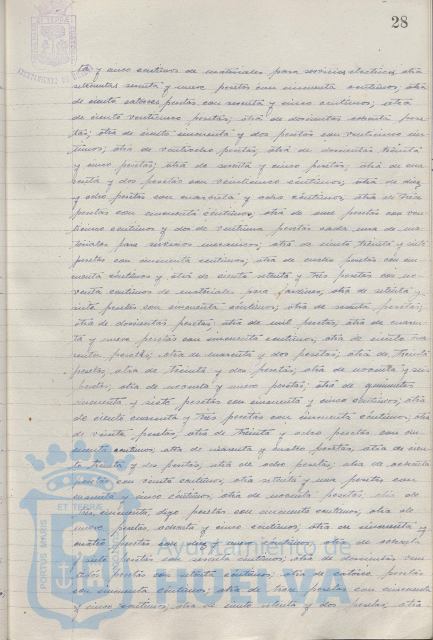 28
ta y cinco centimos de materiales para servicios electricos, otra
setecientas sesenta y nueve pesetas con cincuenta centimos, otra
de ciento catorce pesetas con sesenta y cinco centimos; otra
de ciento veinticinco pesetas; otra de doscientas ochenta pese
tas; otra de ciento cincuenta y dos pesetas con veinticinco cen
timos; otra de veintiocho pesetas; otra de doscientas treinta
y cinco pesetas; otra de sesenta y cinco pesetas; otra de
y dos pesetas con veinticinco centimos, otra de diez
y ocho pesetas con cuarenta y ocho centimos, otra de trece
pesetas con cincuenta centimos, otra de once pesetas con
centimos y dos de veintiuna pesetas cada una de ma
teriales para servicios mecanicos; otra de ciento treinta y siete
pesetas con cincuenta centimos; otra de cuatro pesetas con cin
cuenta centimos y otra de ciento setenta y tres pesetas con no
venta centimos de materiales para jardines; otra de setenta y
siete pesetas con cincuenta centimos; otra de sesenta pesetas;
otra de doscientas pesetas; otra de mil pesetas, otra de cuaren
ta y nueve pesetas con cincuenta centimos, otra de ciento
pesetas; otra de cuarenta y dos pesetas; otra de treinta
pesetas, otra de treinta y dos pesetas; otra de noventa y
pesetas, otra de noventa y nueve pesetas; otra de quinientas
cincuenta y siete pesetas con cincuenta y cinco centimos; otra
de ciento cuarenta y tres pesetas con cincuenta centimos; otra
de veinte pesetas; otra de treinta y ocho pesetas con cin
cuenta centimos; otra de cuarenta y cuatro pesetas, otra de cien
to treinta y dos pesetas, otra de ocho pesetas; otra de ochenta
pesetas con veinte centimos, otra setenta y una pesetas con
cuarenta y cinco centimos, otra de noventa pesetas, otra de
tres cincuenta, digo pesetas con cincuenta centimos, otra de
nueve pesetas, ochenta y cinco centimos; otra de cincuenta y
cuatro pesetas con diez y nueve centimos, otra de ochenta
y siete pesetas con sesenta centimos; otra de doscientas vein
pesetas con setenta centimos; otra de catorce pesetas
con cincuenta centimos, otra de trece pesetas con cincuenta
y cinco centimos, otra de ciento setenta y dos pesetas, otra
ET TERRA
PORTUS MARIS
Ayuntamiento de
HUELVA